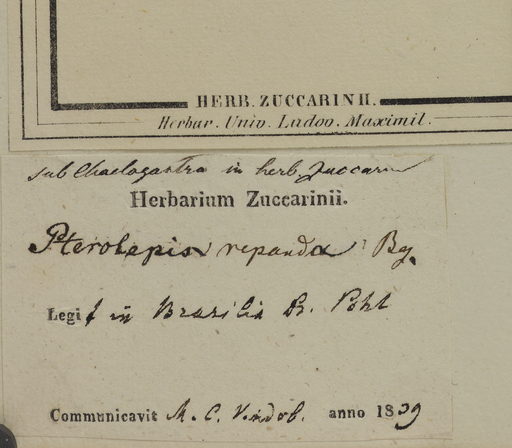 HERB. ZUCCARINII.
Herbar. Univ. Ludov. Maximil.
sub Chaetogastra in herb. Zuccarin
Herbarium Zuccarinii.
Pterolepis repanda Bg.
Legit in Brasilia Dr. Pohl
Communicavit M. C. Vindob. anno 1839